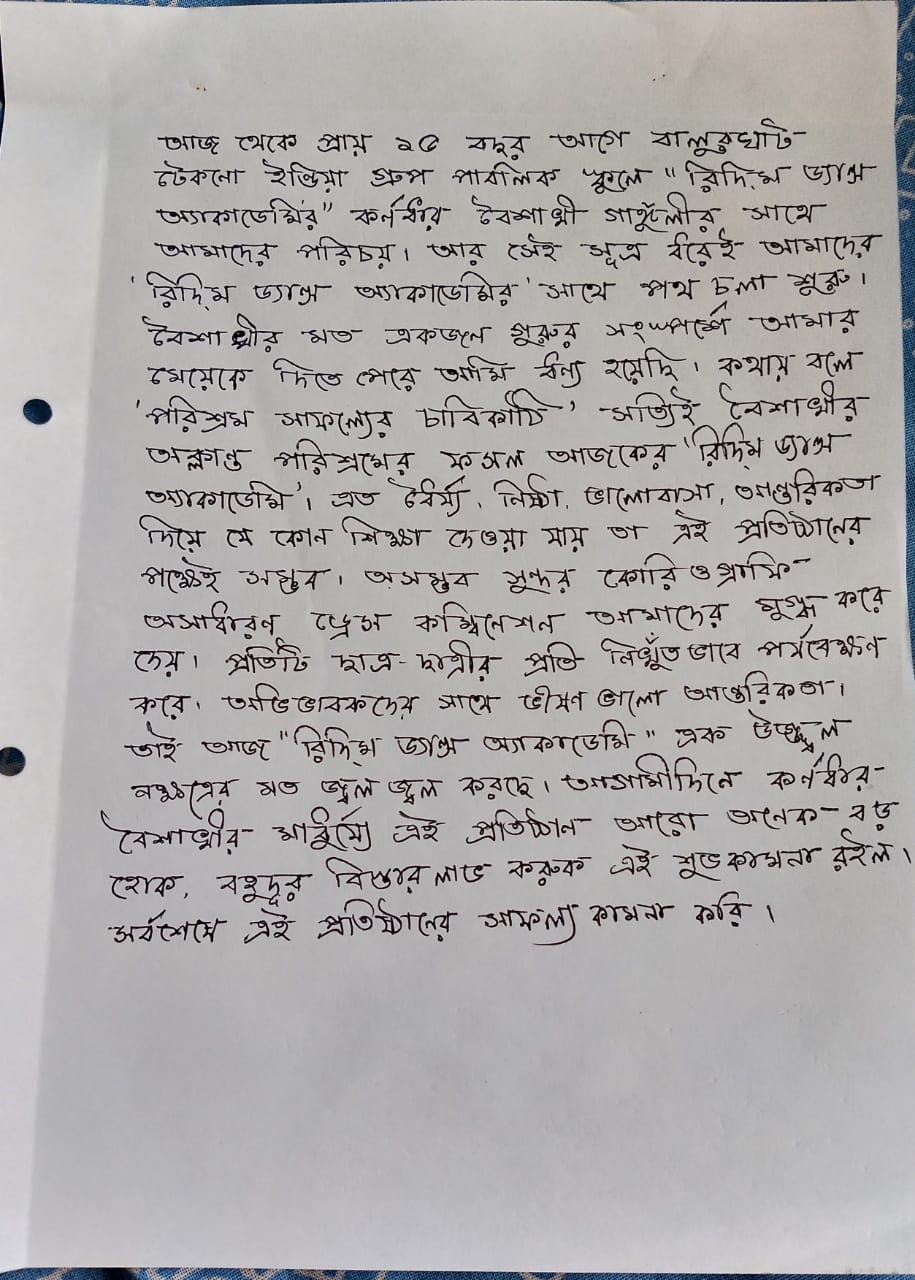 আজ থেকে প্রায় ১৫ বছর আগে বালুরঘাট
টেকনো ইন্ডিয়া গ্রুপ পাবলিক স্কুলে "রিদিম ড্যান্স
অ্যাকাডেমির" কর্নধার বৈশাখী গাঙ্গুঁলীর সাথে
আমাদের পরিচয়। আর সেই সূত্র ধরেই আমাদের
'রিদিম ড্যান্স অ্যাকাডেমির' সাথে পথ চলা শুরু।
বৈশাখীর মত একজন গুরুর সংস্পর্শে আমার
মেয়েকে দিতে পেরে আমি ধন্য হয়েছি। কথায় বলে
'পরিশ্রম সাফল্যের চাবিকাঠি' সত্যিই বৈশাখীর
অক্লান্ত পরিশ্রমের ফসল আজকের 'রিদিম ড্যান্স
অ্যাকাডেমি'। এত ধৈর্য্য, নিষ্ঠা, ভালোবাসা, আন্তরিকতা
দিয়ে যে কোন শিক্ষা দেওয়া যায় তা এই প্রতিষ্ঠানের
পক্ষেই সম্ভব। অসম্ভব সুন্দর কোরিওগ্রাফি
অসাধারণ ড্রেস কম্বিনেশন আমাদের মুগ্ধ করে
দেয়। প্রতিটি ছাত্র-ছাত্রীর প্রতি নিখুঁত ভাবে পর্যবেক্ষণ
করে। অভিভাবকদের সাথে ভীষণ ভালো আন্তরিকতা।
তাই আজ "রিদিম ড্যান্স অ্যাকাডেমি" এক উজ্জ্বল
নক্ষত্রের মত জ্বল জ্বল করছে। আগামীদিনে কর্নধার
বৈশাখীর মাধুর্য্যে এই প্রতিষ্ঠান আরো অনেক বড়
হোক, বহুদূর বিস্তার লাভ করুক এই শুভকামনা রইল।
সর্বশেষে এই প্রতিষ্ঠানের সাফল্য কামনা করি।